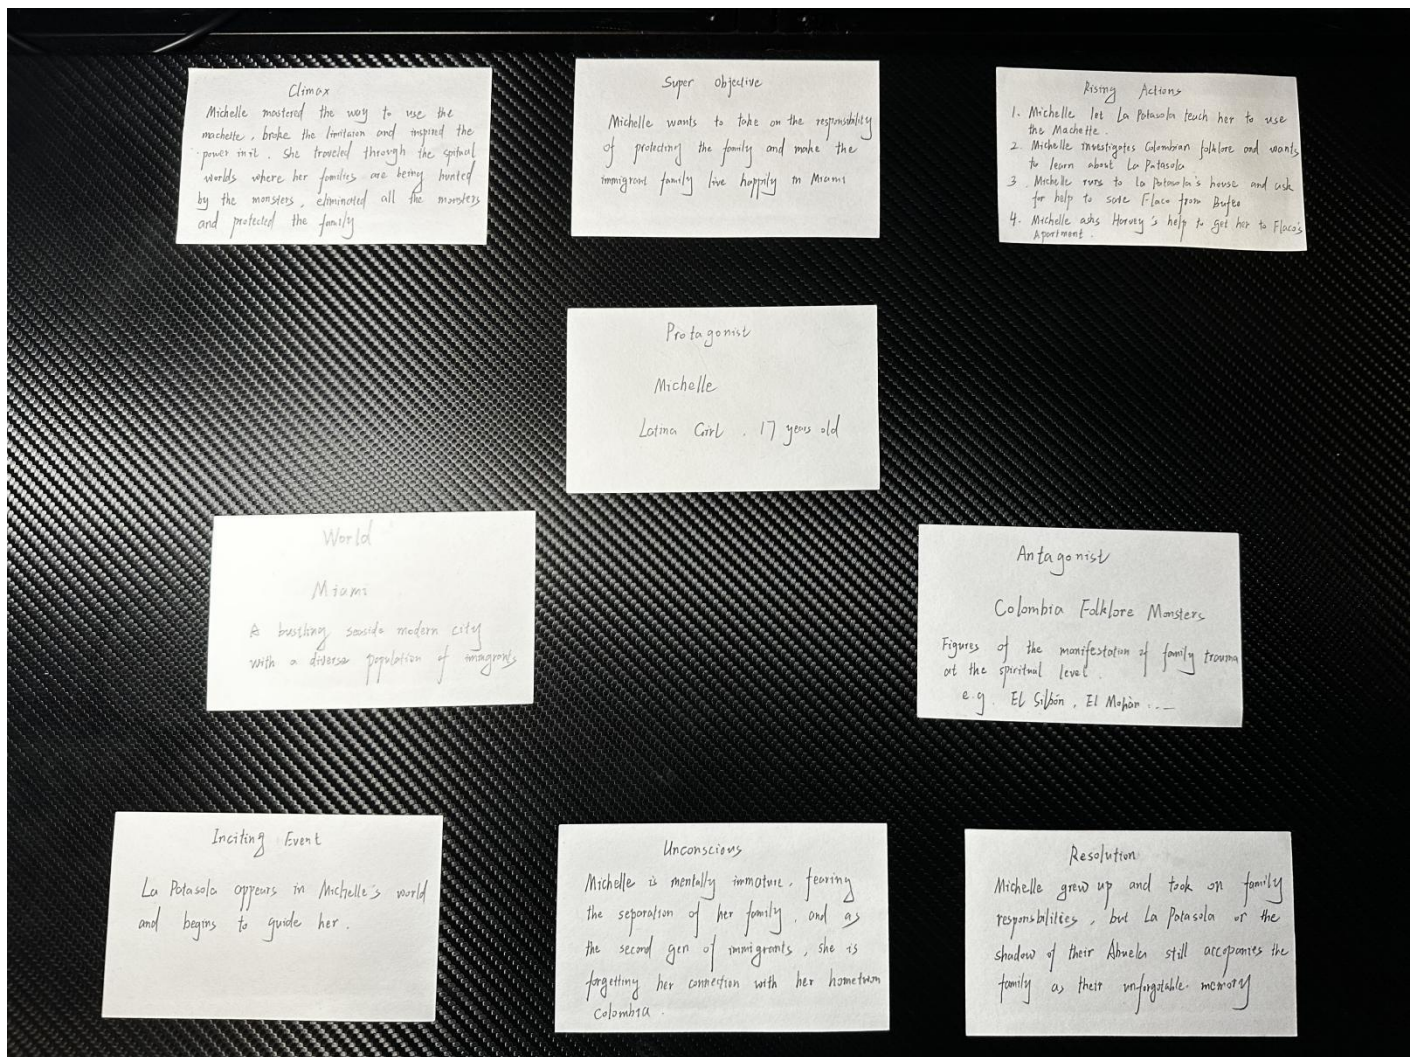 Climax
Michelle mastered the way to use the
machette, broke the limitaion and inspired the
power in it. She traveled through the spitual
worlds where her families are being hunted
by the monsters, eliminated all the monsters
and protected the family
Super Objective
Michelle wants to take on the responsibility
of protecting the family and make the
immigrant family live happily in Miami
Rising Actions
1. Michelle let La Patasola teach her to use
the Machette.
2. Michelle investigates Colombian folklore and wants
to learn about La Patasola
3. Michelle runs to La Patasola's house and ask
for help to save Flaco from Bufeo
4. Michelle asks Harvey's help to get her to Flaco's
Apartment.
Protagonist
Michelle
Latina Girl, 17 years old
World
Miami
A bustling seaside modern city
with a diverse population of immigrants
Antagonist
Colombia Folklore Monsters
Figures of the manifestation of family trauma
at the spiritual level.
e.g. El Silbón, El Mohán...
Inciting Event
La Patasola appears in Michelle's world
and begins to guide her.
Unconscious
Michelle is mentally immature, fearing
the separation of her family, and as
the second gen of immigrants, she is
forgetting her connection with her hometown
Colombia.
Resolution
Michelle grew up and took on family
responsbilities, but La Patasola or the
shadow of their Abuela still accopanies the
family as their unforgotable memory